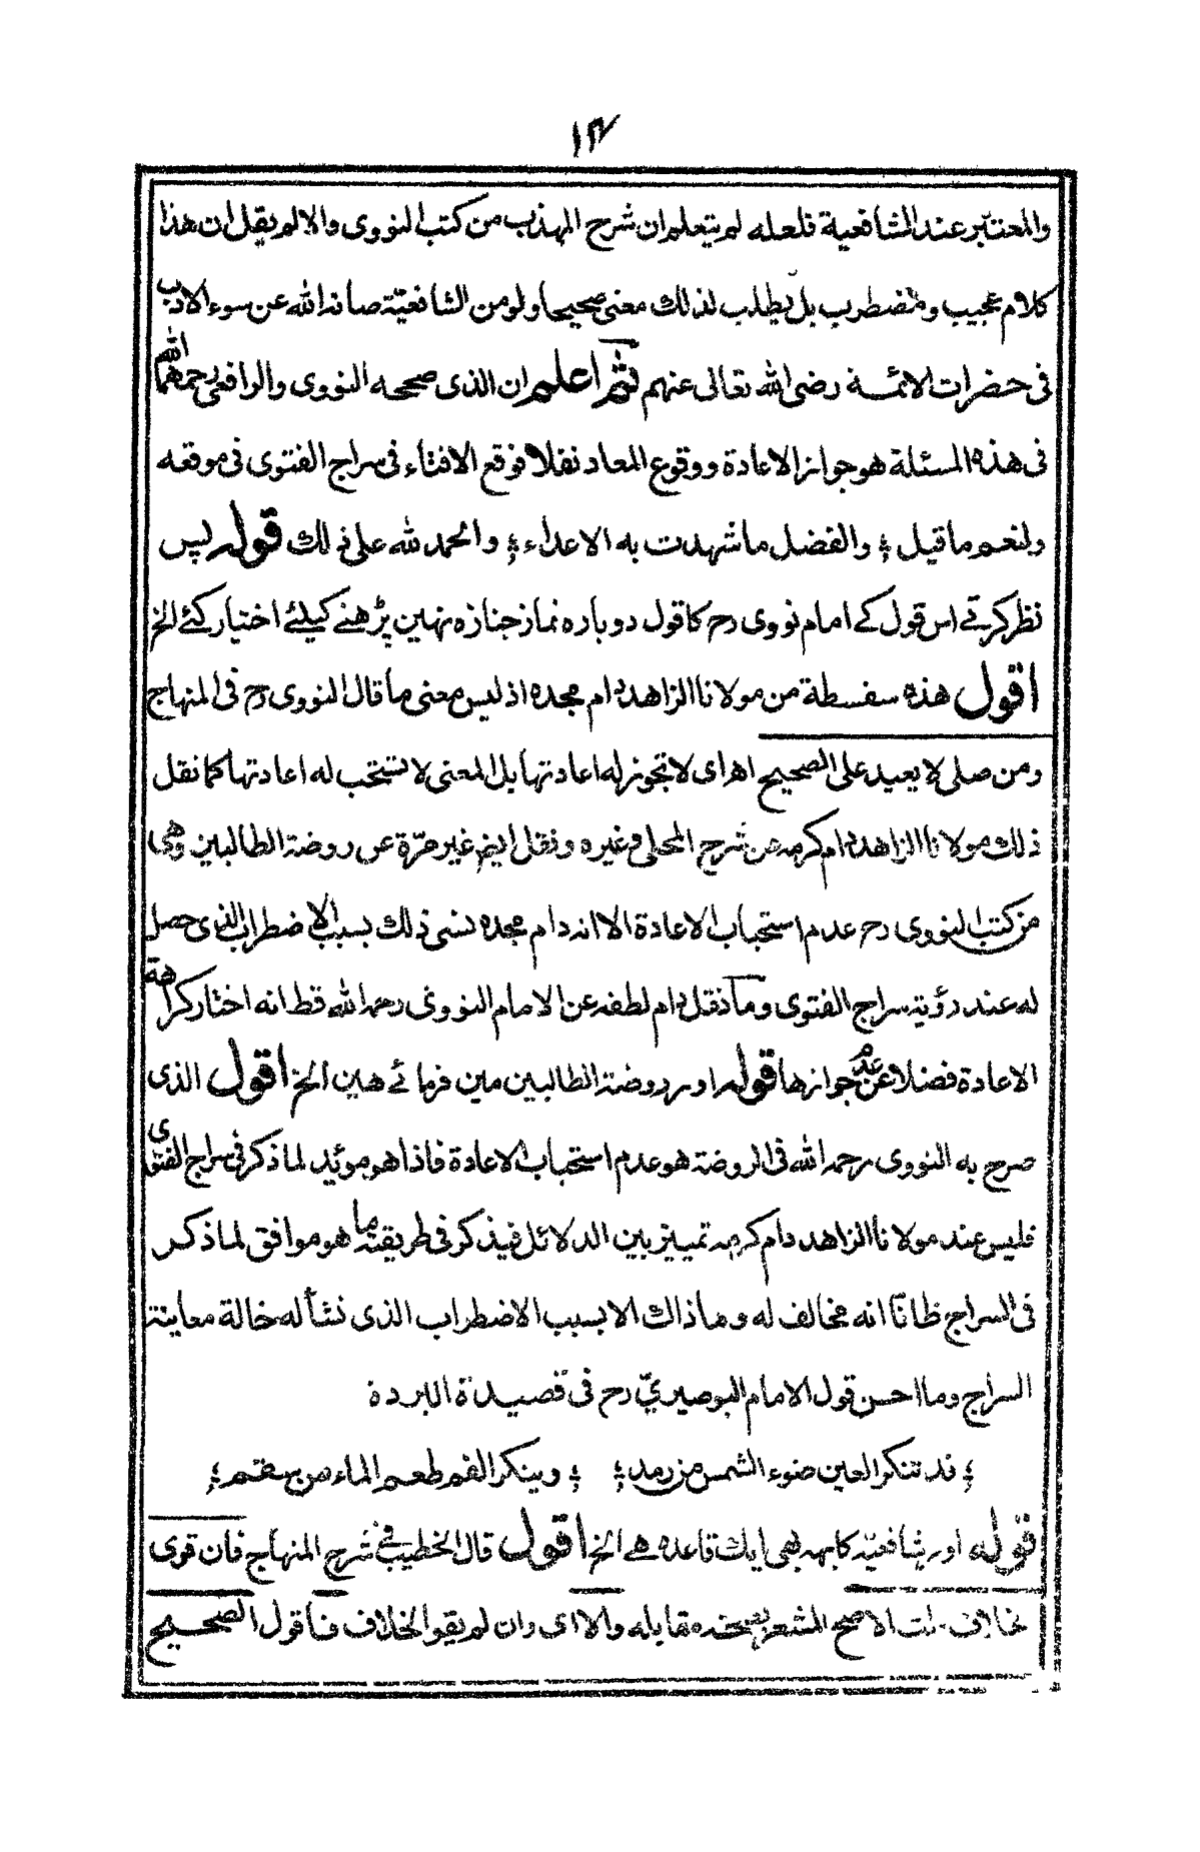 ١٣٧
والمعتبر عند الشافعية فلعله لم يتعلم ان شرح المهذب من كتب النووى والا لم يقل ان هذا
كلام عجيب ومضطرب بل يطلب لذلك معنى صحيحا ولو من الشافعيّة صانه الله عن سوء الادب
فى حضرات الائمة رضى الله تعالى عنهم ثم اعلم ان الذى صححه النووى والرافعى رحمهما الله
فى هذه المسئلة هو جواز الاعادة ووقوع المعاد نفلا فوقع الافتاء فى سراج الفتوى فى موقعه
ولنعم ما قيل ؛ والفضل ما شهدت به الاعداء ؛ والحمد لله على ذلك قوله پس
نظر كرتے اس قول كے امام نووى رح كا قول دوباره نماز جنازه نهين پڑهنے كيلئے اختيار كئے الخ
اقول هذه سفسطة من مولانا الزاهد دام مجده اذ ليس معنى ما قال النووى رح فى المنهاج
ومن صلى لا يعيد على الصحيح اه اى لا تجوز له اعادتها بل المعنى لا تستحب له اعادتها كما نقل
ذلك مولانا الزاهد دام كرمه عن شرح المحلى وغيره ونقل ايضا غير مرّة عن روضة الطالبين وهى
من كتب النووى رح عدم استحباب الاعادة الا انه دام مجده نسى ذلك بسبب الاضطراب الذى حصل
له عند رؤية سراج الفتوى وما نقل دام لطفه عن الامام النووى رحمه الله قط انه اختار كراهة
الاعادة فضلا عن عدم جوازها قوله اور روضة الطالبين مين فرمائے هين الخ اقول الذى
صرح به النووى رحمه الله فى الروضة هو عدم استحباب الاعادة فاذا هو موئيد لما ذكر فى سراج الفتوى
فليس عند مولانا الزاهد دام كرمه تمييز بين الدلائل فيذكر فى طريقته ما هو موافق لما ذكر
فى السراج ظانّا انه مخالف له وما ذاك الا بسبب الاضطراب الذى نشأ له حالة معاينة
السراج وما احسن قول الامام البوصيرىّ رح فى قصيدة البردة
؛ قد تنكر العين ضوء الشمس من رمد ؛ ؛ وينكر الفم طعم الماء من سقم ؛
قوله اور شافعيّه كا يهه بهى ايك قاعده هے الخ اقول قال الخطيب فى شرح المنهاج فان قوى
الخلاف قلت الاصح المشعر بصحة مقابله والا اى وان لم يقو الخلاف فاقول الصحيح